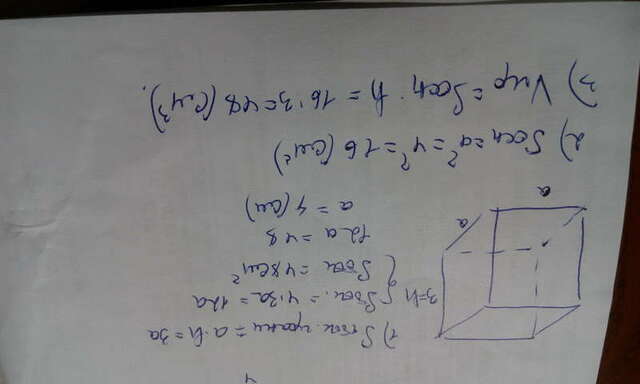 4
1) Sбок. грани = a·h = 3a
{ Sбок. = 4·3a = 12a
Sбок = 48 см²
12a = 48
a = 4 (см)
2) Sосн = a² = 4² = 16 (см²)
3) Vпр = Sосн · h = 16·3 = 48 (см³).
3=h
a
a